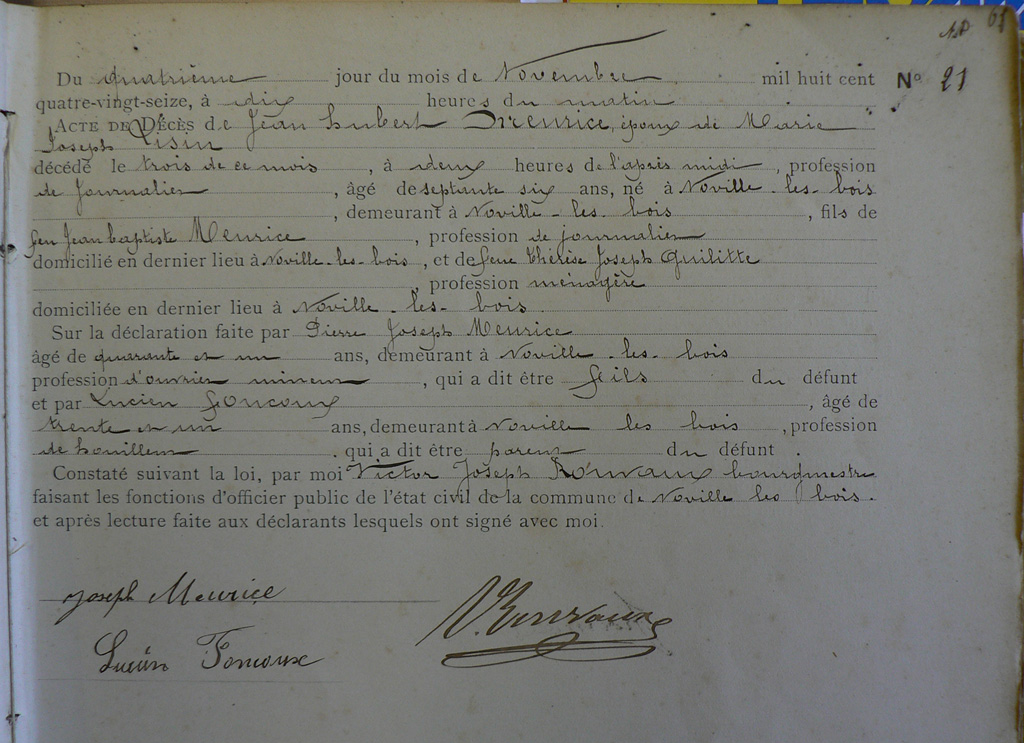 65
Du quatrième jour du mois de Novembre mil huit cent N° 21
quatre-vingt-seize, à dix heures du matin
ACTE DE DÉCÈS de Jean hubert Meurice, époux de Marie
Joseph Lisin
décédé le trois de ce mois, à deux heures de l'après midi, profession
de Journalier, âgé de septante six ans, né à Noville-les-bois
, demeurant à Noville-les-bois, fils de
feu Jean baptiste Meurice, profession de journalier
domicilié en dernier lieu à Noville-les-bois, et de feue Thérèse Joseph Quilitte
, profession ménagère
domiciliée en dernier lieu à Noville-les-bois.
Sur la déclaration faite par Pierre Joseph Meurice
âgé de quarante et un ans, demeurant à Noville-les-bois
profession d'ouvrier mineur, qui a dit être fils du défunt
et par Lucien Foncoux, âgé de
trente et un ans, demeurant à Noville les bois, profession
de houilleur. qui a dit être parent du défunt.
Constaté suivant la loi, par moi Victor Joseph bourgmestre
faisant les fonctions d'officier public de l'état civil de la commune de Noville les bois.
et après lecture faite aux déclarants lesquels ont signé avec moi.
Joseph Meurice
Lucien Foncoux